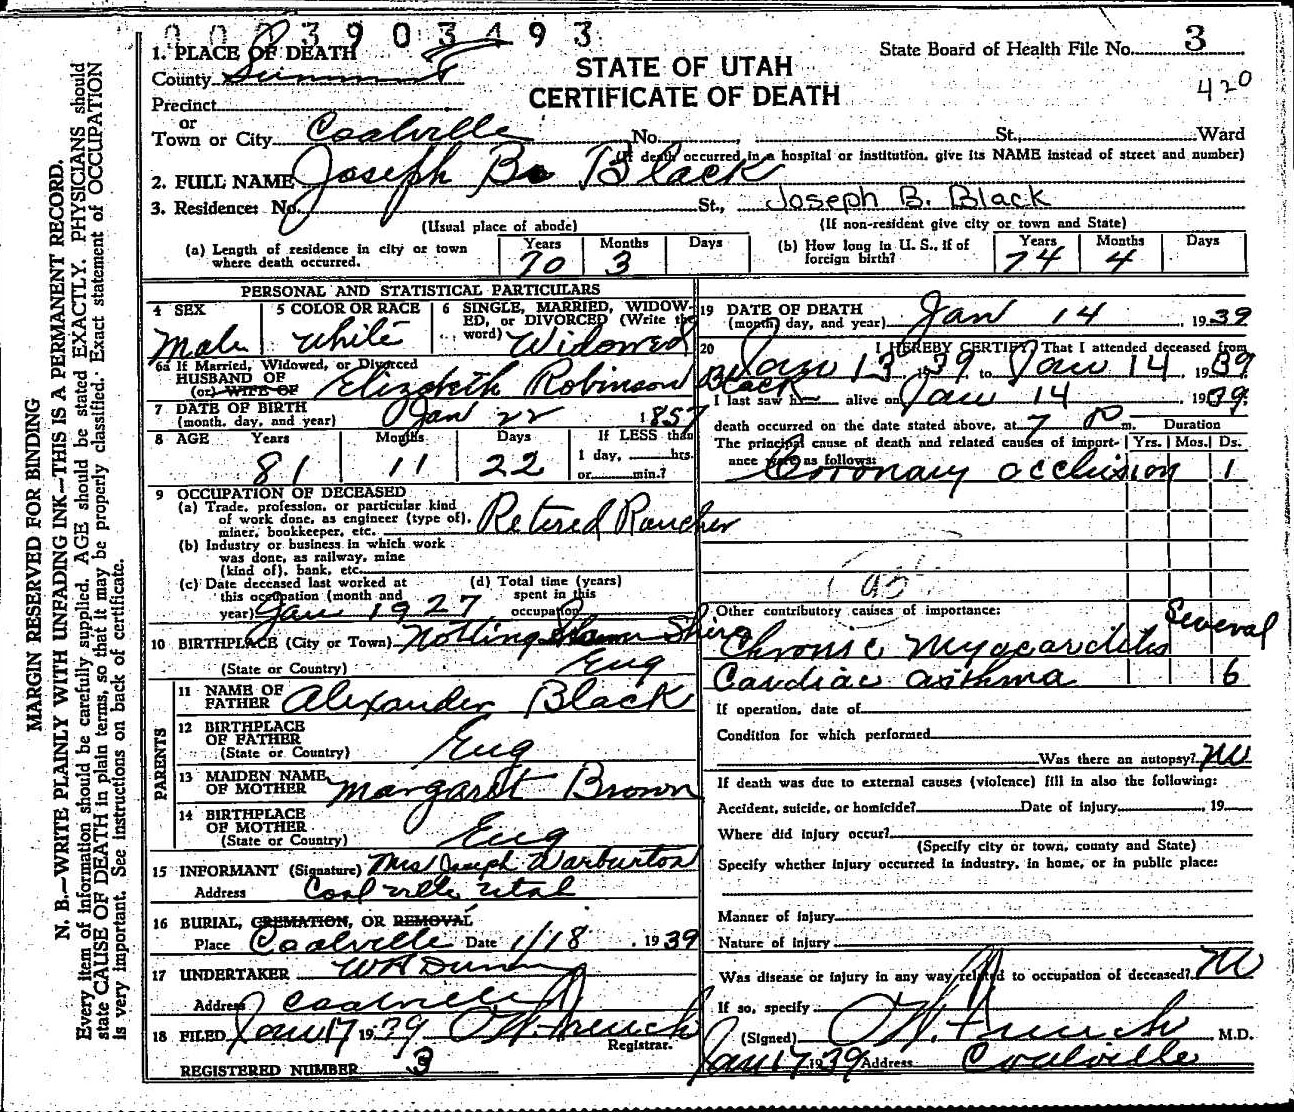 003903493
1. PLACE OF DEATH
County Summit
STATE OF UTAH
CERTIFICATE OF DEATH
State Board of Health File No. 3
420
Precinct
or
Town or City Coalville No. , St., Ward
(If death occurred in a hospital or institution, give its NAME instead of street and number)
2. FULL NAME Joseph B. Black
3. Residence: No. St., Joseph B. Black
(Usual place of abode) (If non-resident give city or town and State)
(a) Length of residence in city or town where death occurred. Years 70 Months 3 Days
(b) How long in U. S., if of foreign birth? Years 74 Months 4 Days
PERSONAL AND STATISTICAL PARTICULARS
4 SEX Male
5 COLOR OR RACE White
6 SINGLE, MARRIED, WIDOWED, or DIVORCED (Write the word) Widowed
6a If Married, Widowed, or Divorced
HUSBAND OF
(or) WIFE OF Elizabeth Robinson Black
7 DATE OF BIRTH
(month, day, and year) Jan 22 1857
8 AGE Years 81 Months 11 Days 22 If LESS than 1 day, hrs. or min.?
9 OCCUPATION OF DECEASED
(a) Trade, profession, or particular kind of work done, as engineer (type of), miner, bookkeeper, etc. Retired Rancher
(b) Industry or business in which work was done, as railway, mine (kind of), bank, etc.
(c) Date deceased last worked at this occupation (month and year) Jan 1927
(d) Total time (years) spent in this occupation
10 BIRTHPLACE (City or Town) Nottingham Shire
(State or Country) Eng
PARENTS
11 NAME OF FATHER Alexander Black
12 BIRTHPLACE OF FATHER
(State or Country) Eng
13 MAIDEN NAME OF MOTHER Margaret Brown
14 BIRTHPLACE OF MOTHER
(State or Country) Eng
15 INFORMANT (Signature) Mrs Joseph Warburton
Address Coalville Utah
16 BURIAL, CREMATION, OR REMOVAL
Place Coalville Date 1/18 , 1939
17 UNDERTAKER
Address Coalville
18 FILED Jan 17 1939
Registrar.
REGISTERED NUMBER 3
19 DATE OF DEATH
(month, day, and year) Jan 14 1939
20 I HEREBY CERTIFY That I attended deceased from
Jan 13, 1939 to Jan 14 1939
I last saw h alive on Jan 14 1939.
death occurred on the date stated above, at 7 P m. Duration
The principal cause of death and related causes of importance were as follows: Yrs. Mos. Ds.
Coronary occlusion 1
95
Other contributory causes of importance:
Chronic myocarditis Several
Cardiac asthma 6
If operation, date of
Condition for which performed
Was there an autopsy? No
If death was due to external causes (violence) fill in also the following:
Accident, suicide, or homicide? Date of injury , 19
Where did injury occur?
(Specify city or town, county and State)
Specify whether injury occurred in industry, in home, or in public place:
Manner of injury
Nature of injury
Was disease or injury in any way related to occupation of deceased? No
If so, specify
(Signed) M.D.
Jan 17 1939 Address Coalville
MARGIN RESERVED FOR BINDING
N. B.—WRITE PLAINLY WITH UNFADING INK—THIS IS A PERMANENT RECORD.
Every item of information should be carefully supplied. AGE should be stated EXACTLY. PHYSICIANS should
state CAUSE OF DEATH in plain terms, so that it may be properly classified. Exact statement of OCCUPATION
is very important. See instructions on back of certificate.